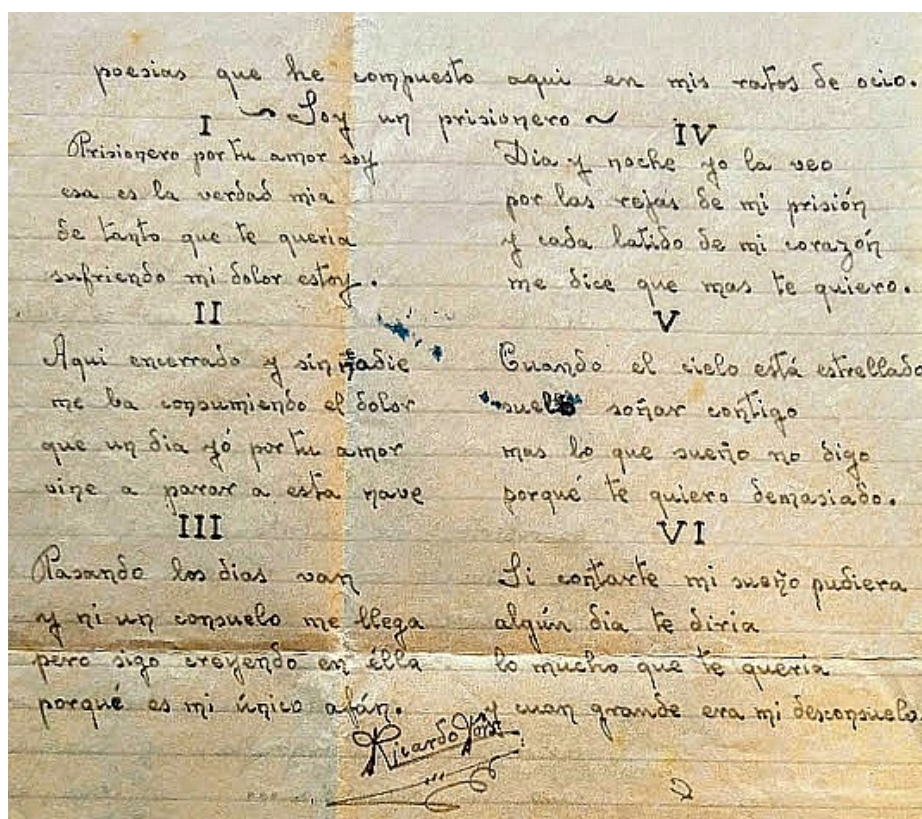 poesias que he compuesto aqui en mis ratos de ocio.
~ Soy un prisionero ~
I
Prisionero por tu amor soy
esa es la verdad mia
de tanto que te queria
sufriendo mi dolor estoy.
II
Aqui encerrado y sin nadie
me ba consumiendo el dolor
que un dia yó por tu amor
vine a parar a esta nave
III
Pasando los dias van
y ni un consuelo me llega
pero sigo creyendo en élla
porqué es mi único afán.
IV
Dia y noche yo la veo
por las rejas de mi prisión
y cada latido de mi corazón
me dice que mas te quiero.
V
Cuando el cielo está estrellado
suelo soñar contigo
mas lo que sueño no digo
porqué te quiero demasiado.
VI
Si contarte mi sueño pudiera
algún dia te diria
lo mucho que te queria
y cuan grande era mi desconsuelo.
Ricardo